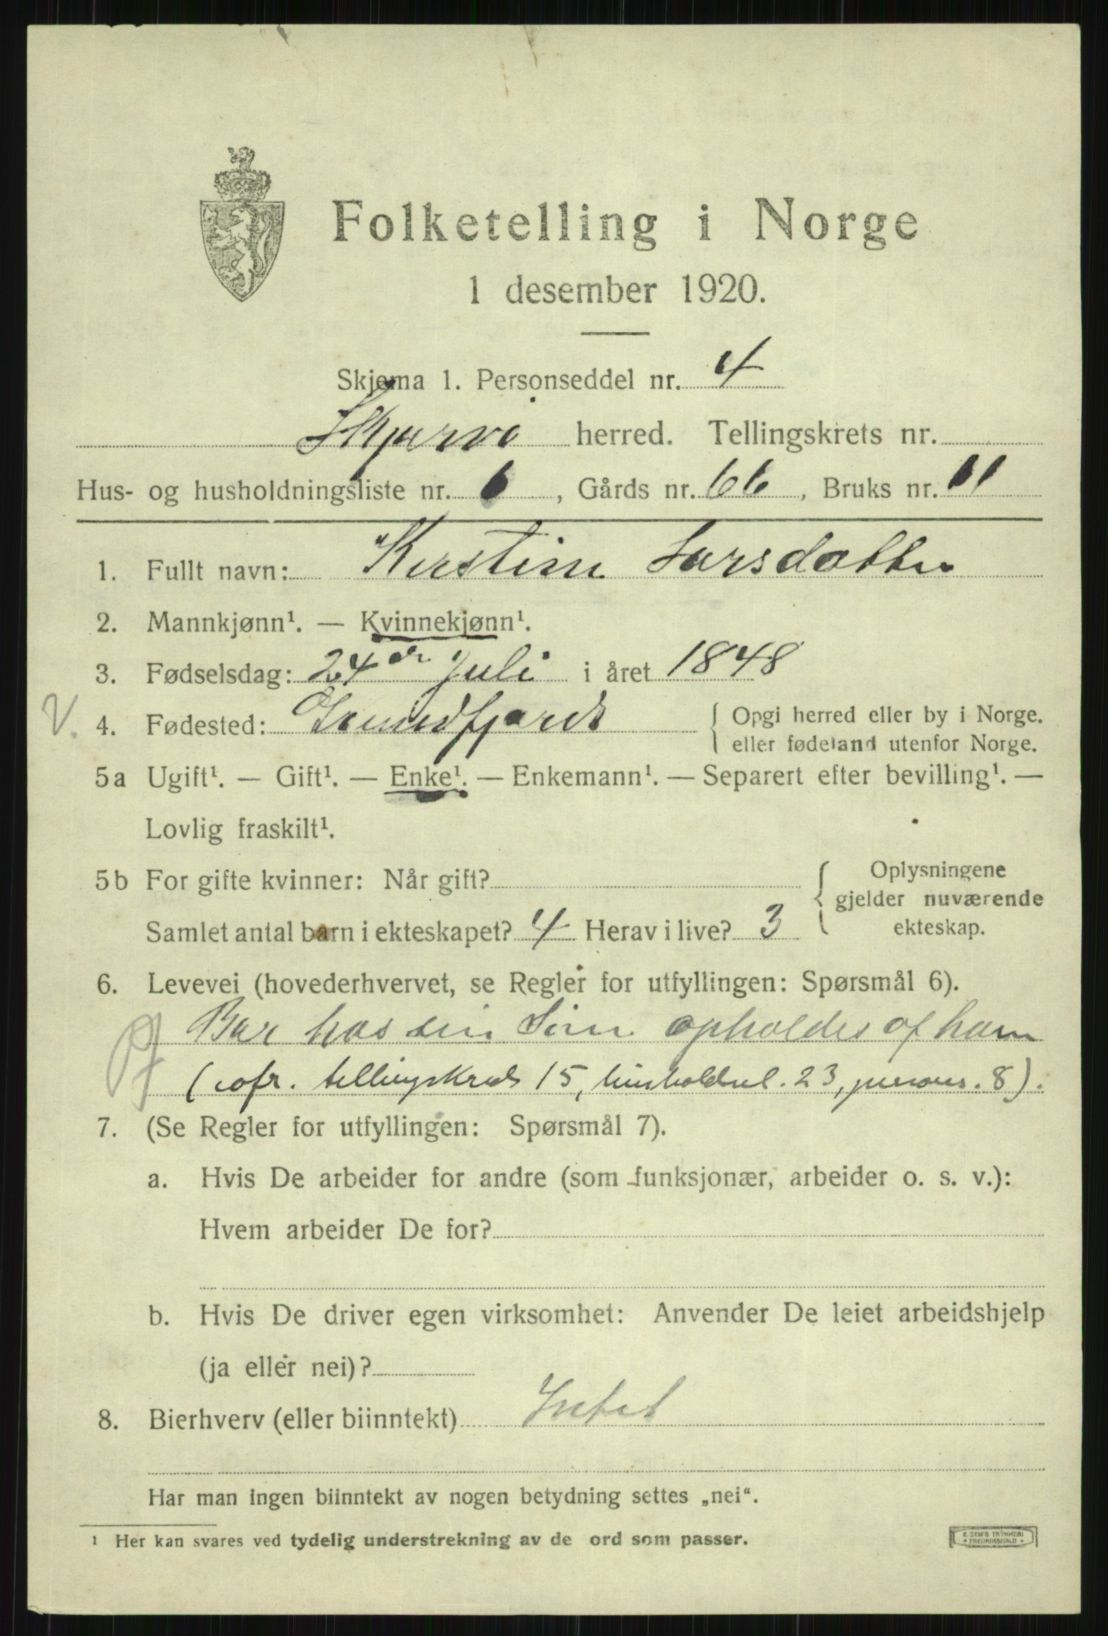 Folketelling i Norge
1 desember 1920.
Skjema 1. Personseddel nr. 4
Skjervø herred. Tellingskrets nr.
Hus- og husholdningsliste nr. 6, Gårds nr. 66, Bruks nr. 11
1. Fullt navn: Kirstine Larsdatter
2. Mannkjønn¹. — Kvinnekjønn¹.
3. Fødselsdag: 24 de Juli i året 1848
V. 4. Fødested: { Opgi herred eller by i Norge.
eller fødeland utenfor Norge.
5a Ugift¹. — Gift¹. — Enke¹. — Enkemann¹. — Separert efter bevilling¹. —
Lovlig fraskilt¹.
5b For gifte kvinner: Når gift? { Oplysningene
gjelder nuværende
ekteskap.
Samlet antal barn i ekteskapet? 4 Herav i live? 3
6. Levevei (hovederhvervet, se Regler for utfyllingen: Spørsmål 6).
Bor hos sin Sön opholdes af ham
(cfr. tellingskreds 15, husholdn.l. 23, persons. 8).
7. (Se Regler for utfyllingen: Spørsmål 7).
a. Hvis De arbeider for andre (som funksjonær, arbeider o. s. v.):
Hvem arbeider De for?
b. Hvis De driver egen virksomhet: Anvender De leiet arbeidshjelp
(ja eller nei)?
8. Bierhverv (eller biinntekt) Intet
Har man ingen biinntekt av nogen betydning settes „nei“.
¹ Her kan svares ved tydelig understrekning av de ord som passer.